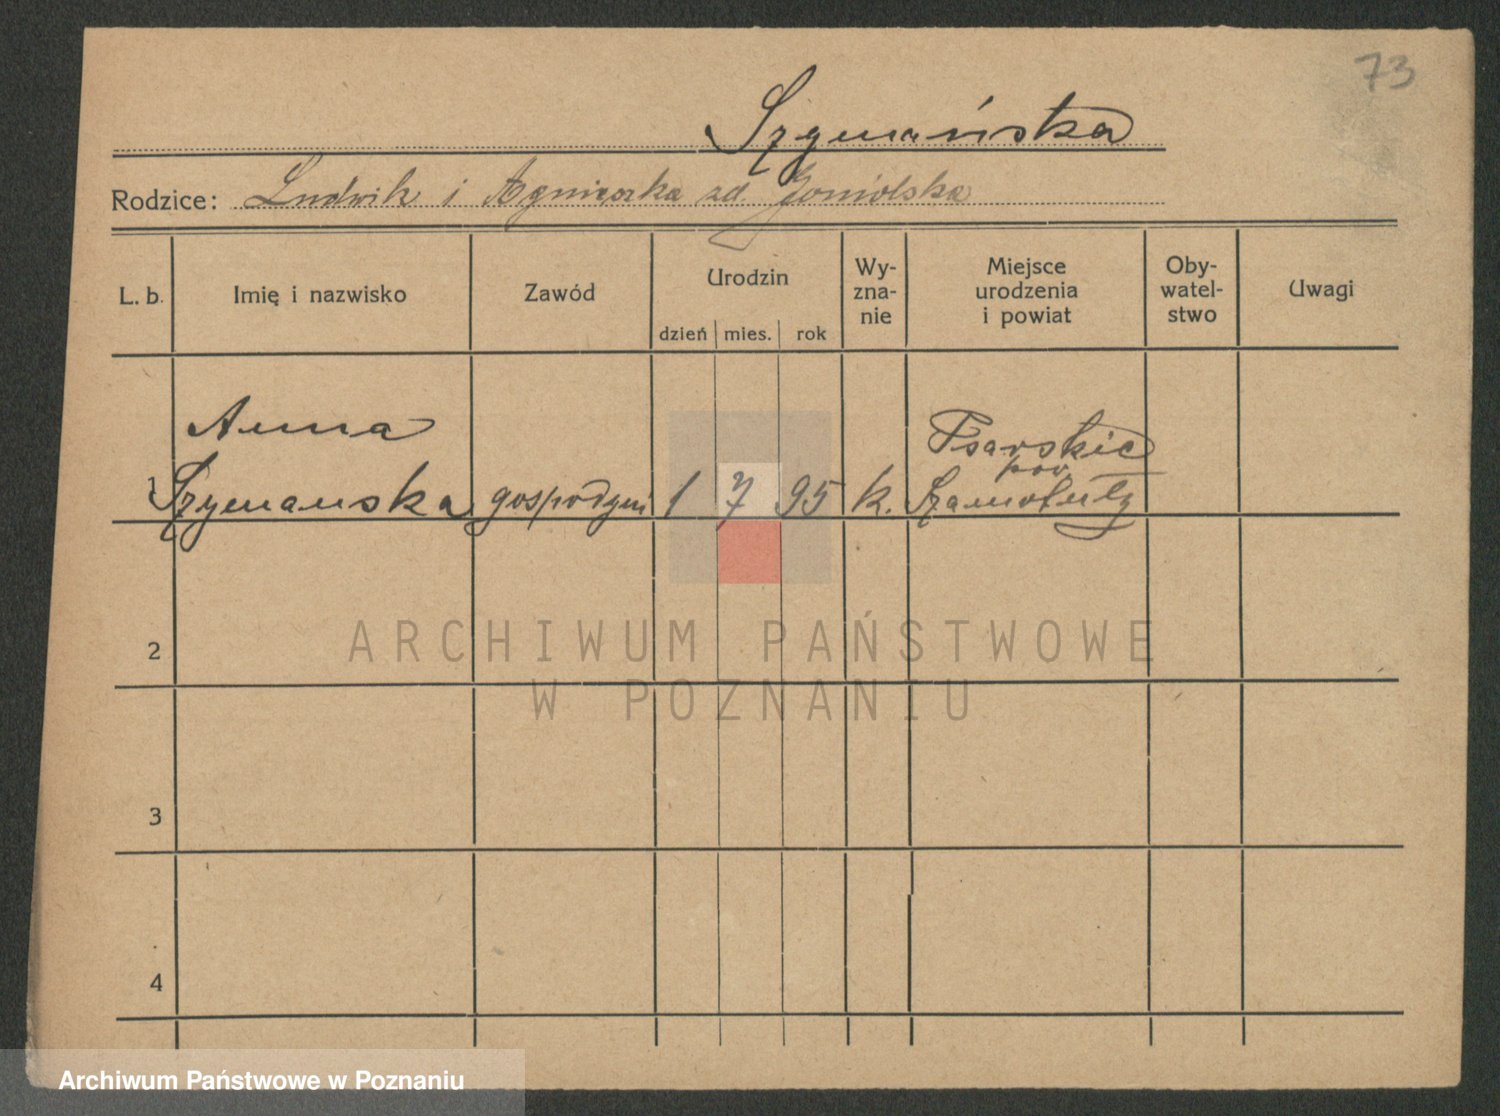 73
Szymańska
Rodzice: Ludwik i Agnieszka zd. Goniolska
L. b.
Imię i nazwisko
Zawód
Urodzin
dzień mies. rok
Wy-
zna-
nie
Miejsce
urodzenia
i powiat
Oby-
watel-
stwo
Uwagi
1
Anna
Szymanska
gospodyni
1 7 95
k.
Psarskie
pow
Szamotuły
2
3
4
ARCHIWUM PAŃSTWOWE
W POZNANIU
Archiwum Państwowe w Poznaniu